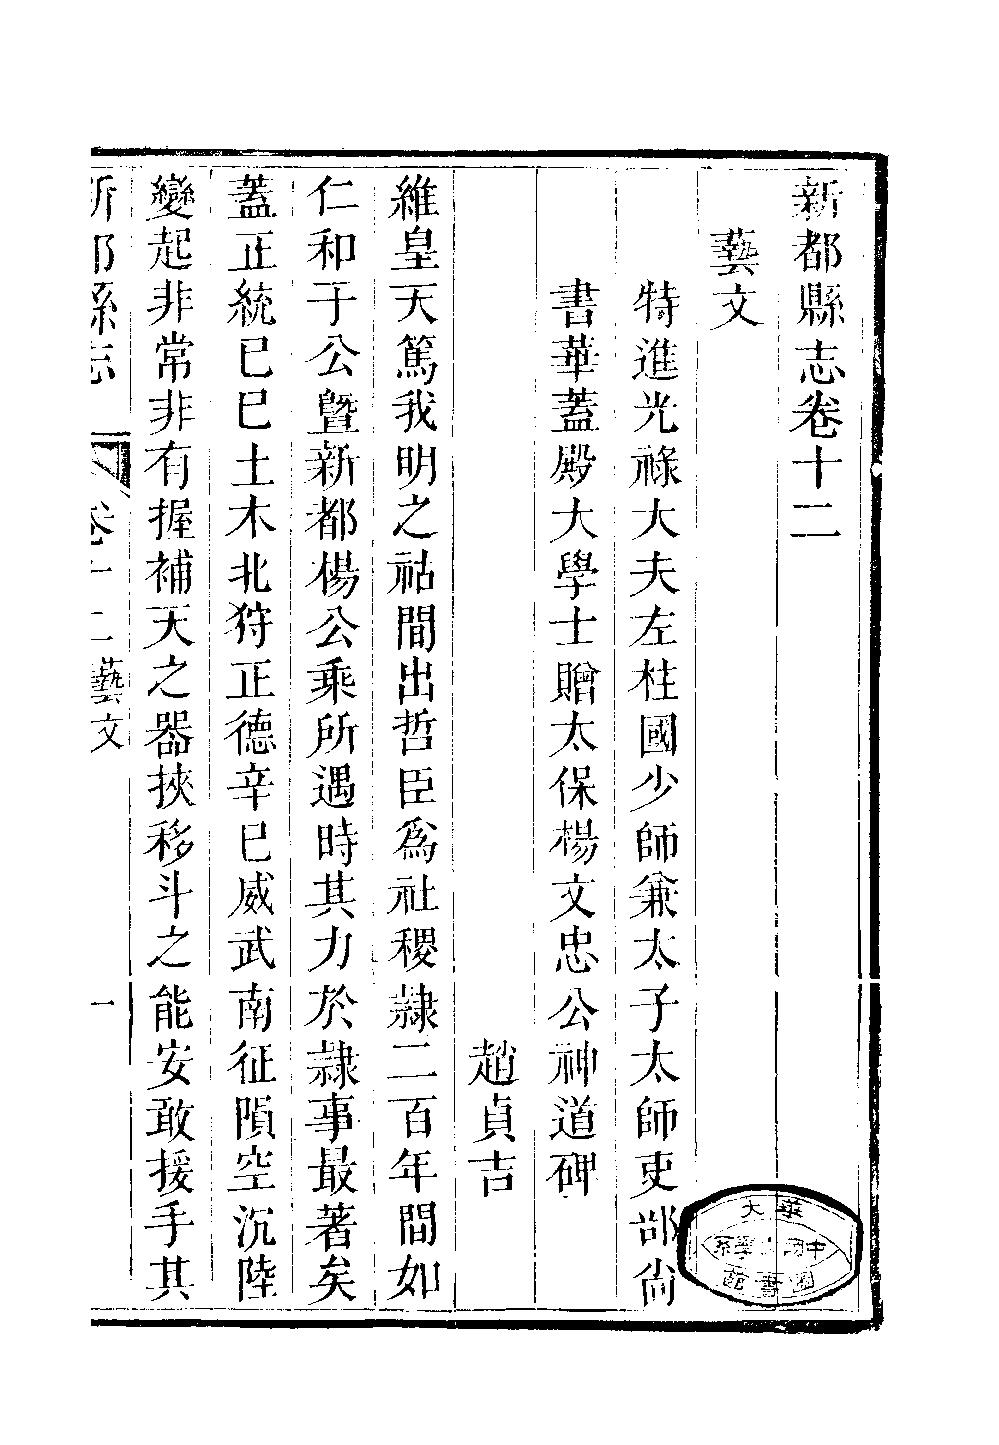 新都縣志卷十二
藝文
特進光祿大夫左柱國少師兼太子太師吏部尚
書華蓋殿大學士贈太保楊文忠公神道碑
趙貞吉
維皇天篤我明之祜間出哲臣爲社稷隸二百年間如
仁和于公暨新都楊公乘所遇時其力於隸事最著矣
蓋正統已巳土木北狩正德辛巳威武南征隕空沉陸
變起非常非有握補天之器挾移斗之能安敢援手其
新都縣志 卷十二 藝文 一